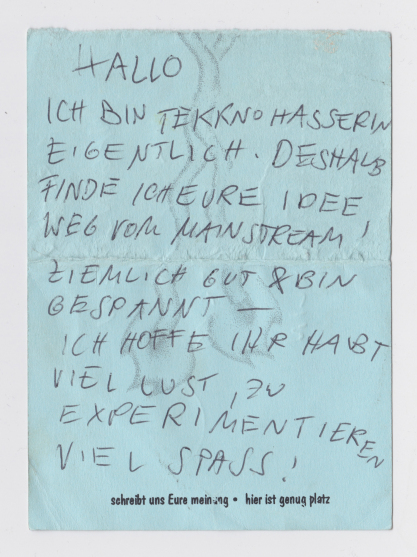 HALLO
ICH BIN TEKKNOHASSERIN
EIGENTLICH. DESHALB
FINDE ICH EURE IDEE
WEG VOM MAINSTREAM!
ZIEMLICH GUT & BIN
GESPANNT —
ICH HOFFE IHR HABT
VIEL LUST, ZU
EXPERIMENTIEREN
VIEL SPASS!
schreibt uns Eure meinung • hier ist genug platz